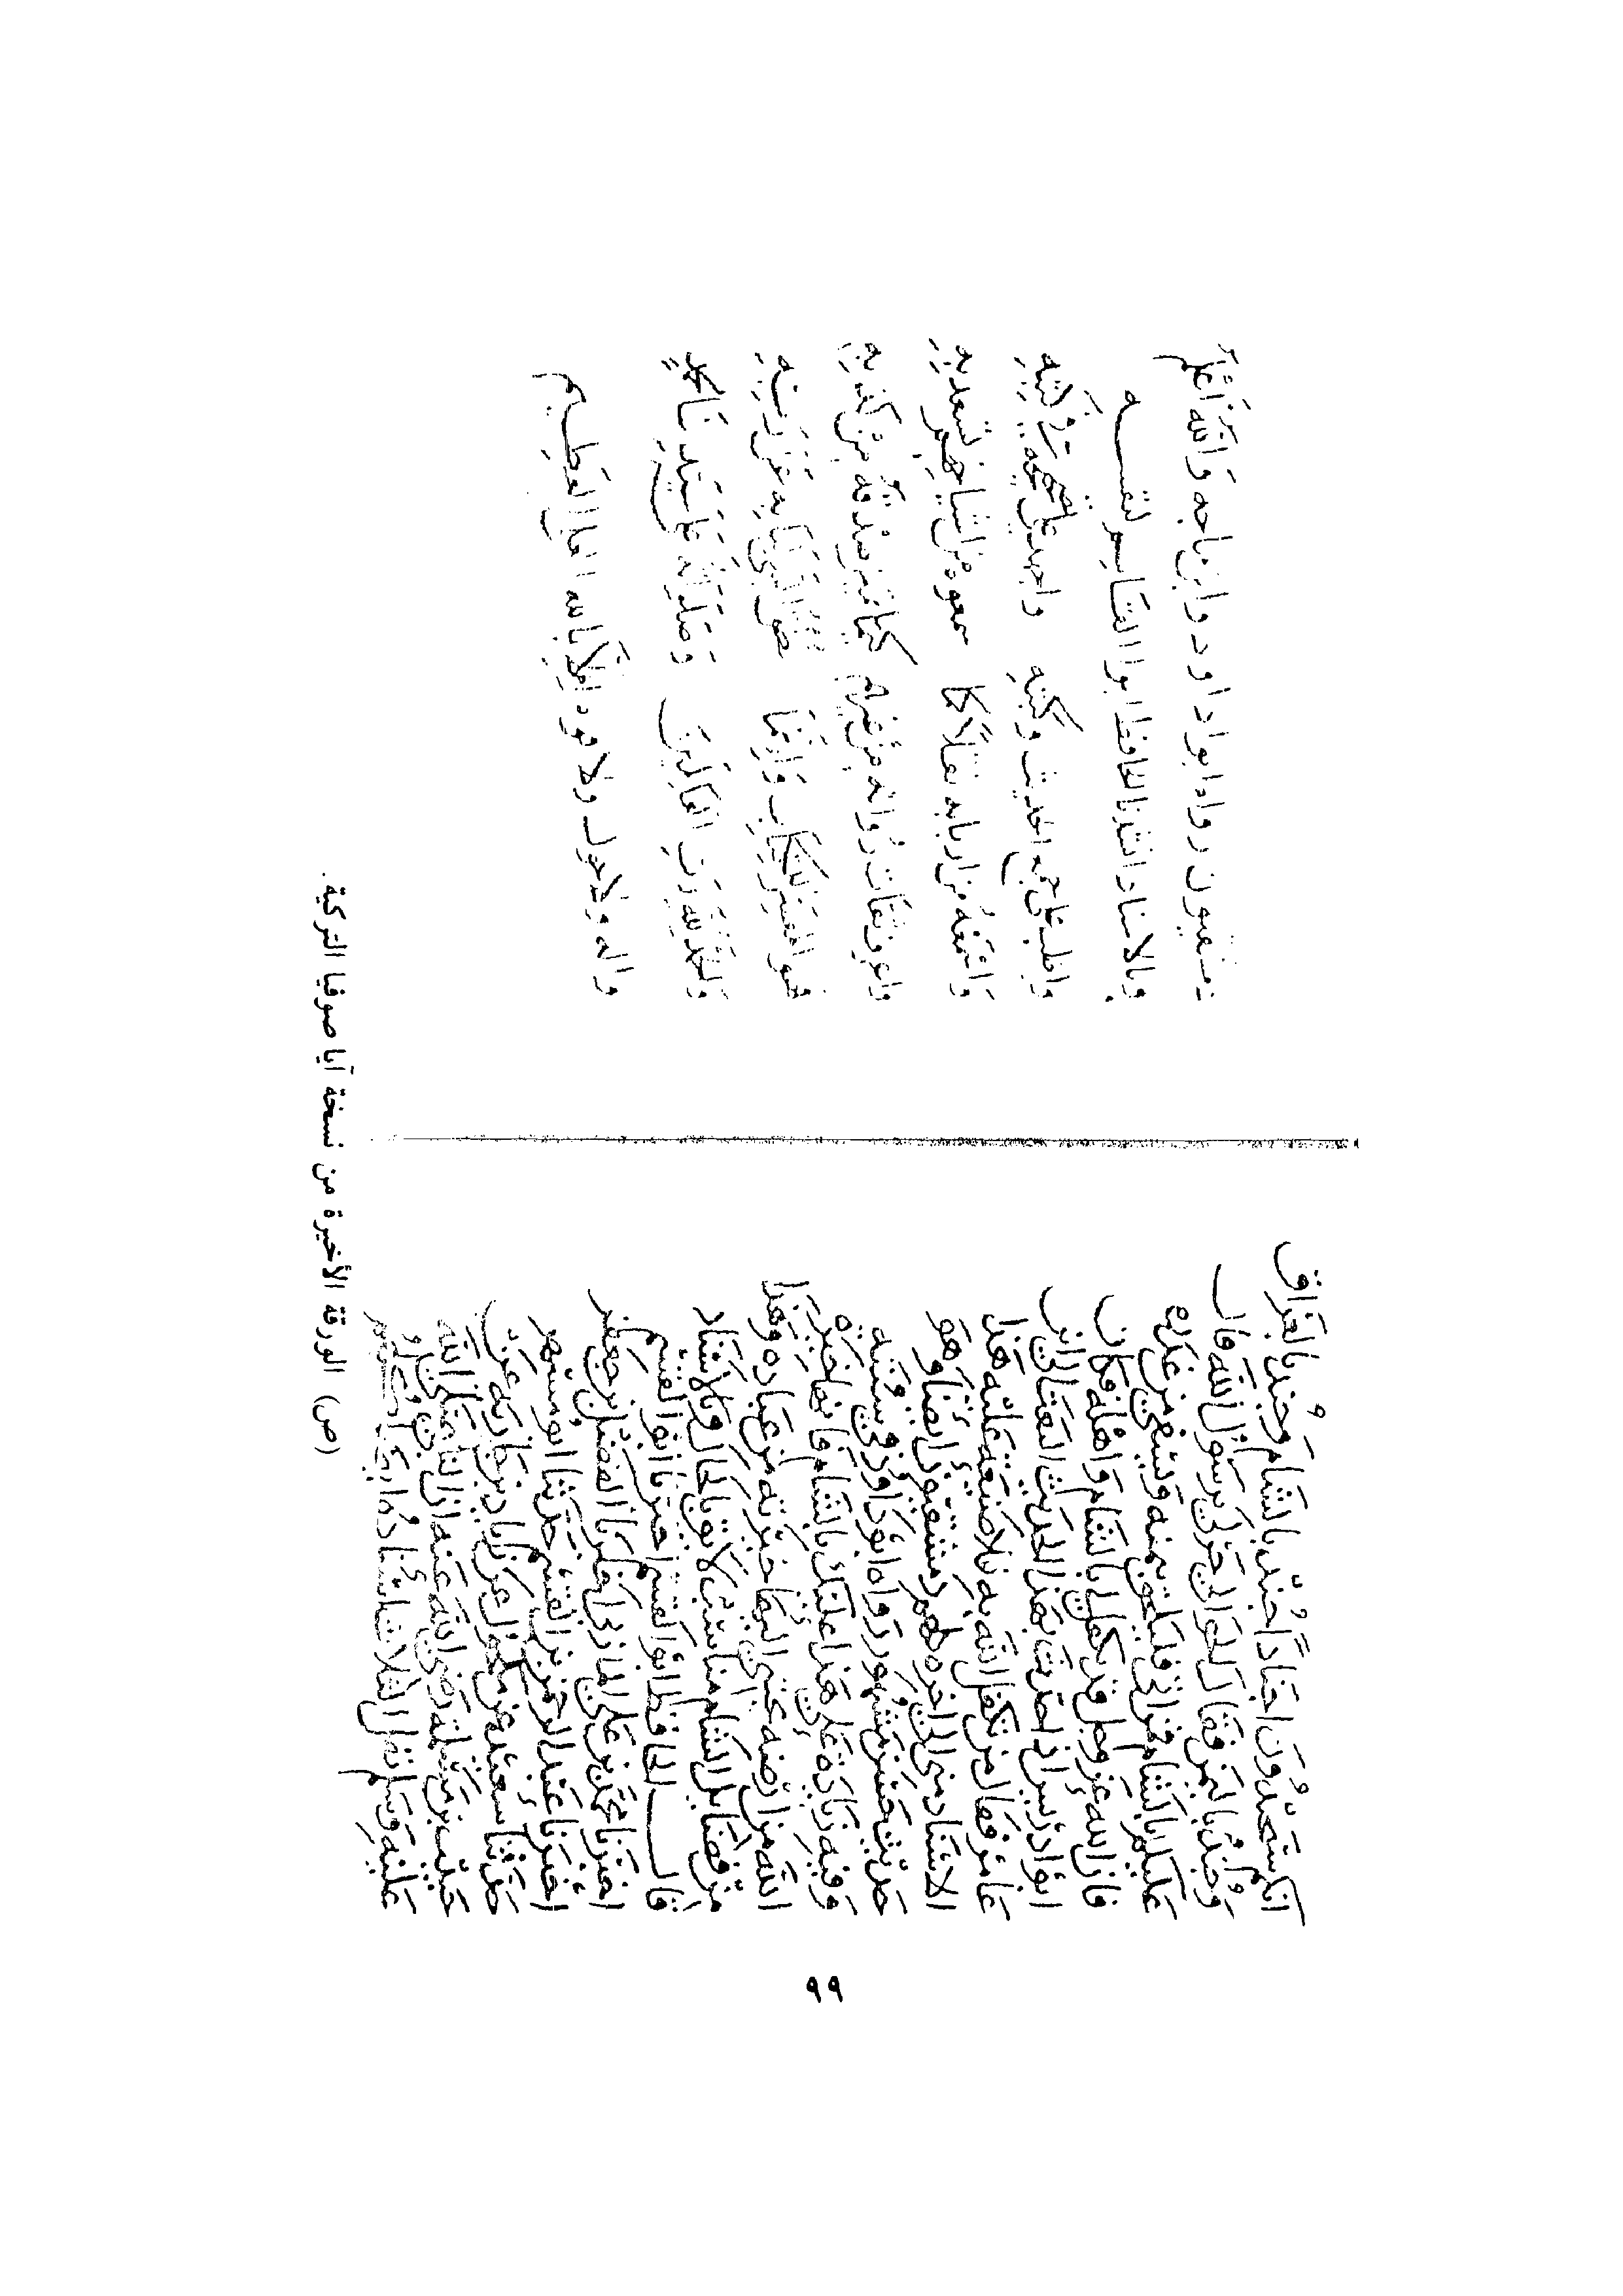 انكم ستجندون اجنادا جند بالشام وجند بالعراق
وجند باليمن فقال الحوالي خر لي يرسول الله قال
عليكم بالشام فمن ابى فليلحق بيمنه وليسقي من غدره
فان الله عز وجل قد تكفل لي بالشام واهله فكان
ابو ادريس اذا حدث بهذا الحديث التفت الى ابن
عامر فقال من تكفل الله به فلا ضيعة عليه هذا
الاسناد من الى اخره كلهم دمشقيون ايضا وهو
حديث حسن مشهور رواه ابو داود في سننه
وفيه زيادة على هذا عليك بالشام فانها خيرة
الله من ارضه يجتبي اليها خيرته من عباده وهذا
من فضايل الشام مناسب لايق بالحال وبالاسناد
قال الحافظ ابو القسم اخبرنا ابو القسم
اخبرنا محمد بن علي المازري اخبرنا الفضل بن جعفر
اخبرنا عبد الرحمن بن القسم حدثنا ابو مسهر
حدثنا سعيد عن مكحول عن زياد بن جارية عن
حبيب بن مسلمة رضي الله عنه ان النبي صلى الله
عليه وسلم نفل الثلث
دمشقيون رواه ابو داود وابن ماجه والله اعلم
وبالاسناد انشدنا الحافظ ابو القاسم لنفسه
واظب على جمع الحديث وكتبه واجهد على تصحيحه في كتبه
واسمعه من اربابه نقلا كما سمعوه من اشياخهم تسعد به
واعرف ثقات رواته من غيرهم كيما تميز صدقه من كذبه
فهو المفسر للكتاب وانما نطق النبي لنا به عن ربه
والحمد لله رب العالمين وصلواته على سيدنا محمد
واله ولا حول ولا قوة الا بالله العلي العظيم
(ص) الورقة الأخيرة من نسخة آيا صوفيا التركية.
٩٩